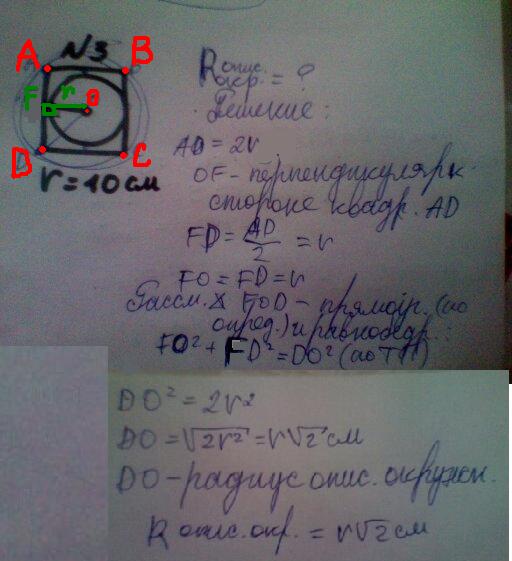 №3
A B
F r O
D C
r = 10 см
R опис. окр. = ?
Решение:
AD = 2r
OF - перпендикулярк
стороне квадр. AD
FD = AD/2 = r
FO = FD = r
Рассм. △ FOD - прямоуг. (по
опред.) и равнобедр.:
FO² + FD² = DO² (по ТП)
DO² = 2r²
DO = √2r² = r√2 см
DO - радиус опис. окружн.
R опис. окр. = r√2 см